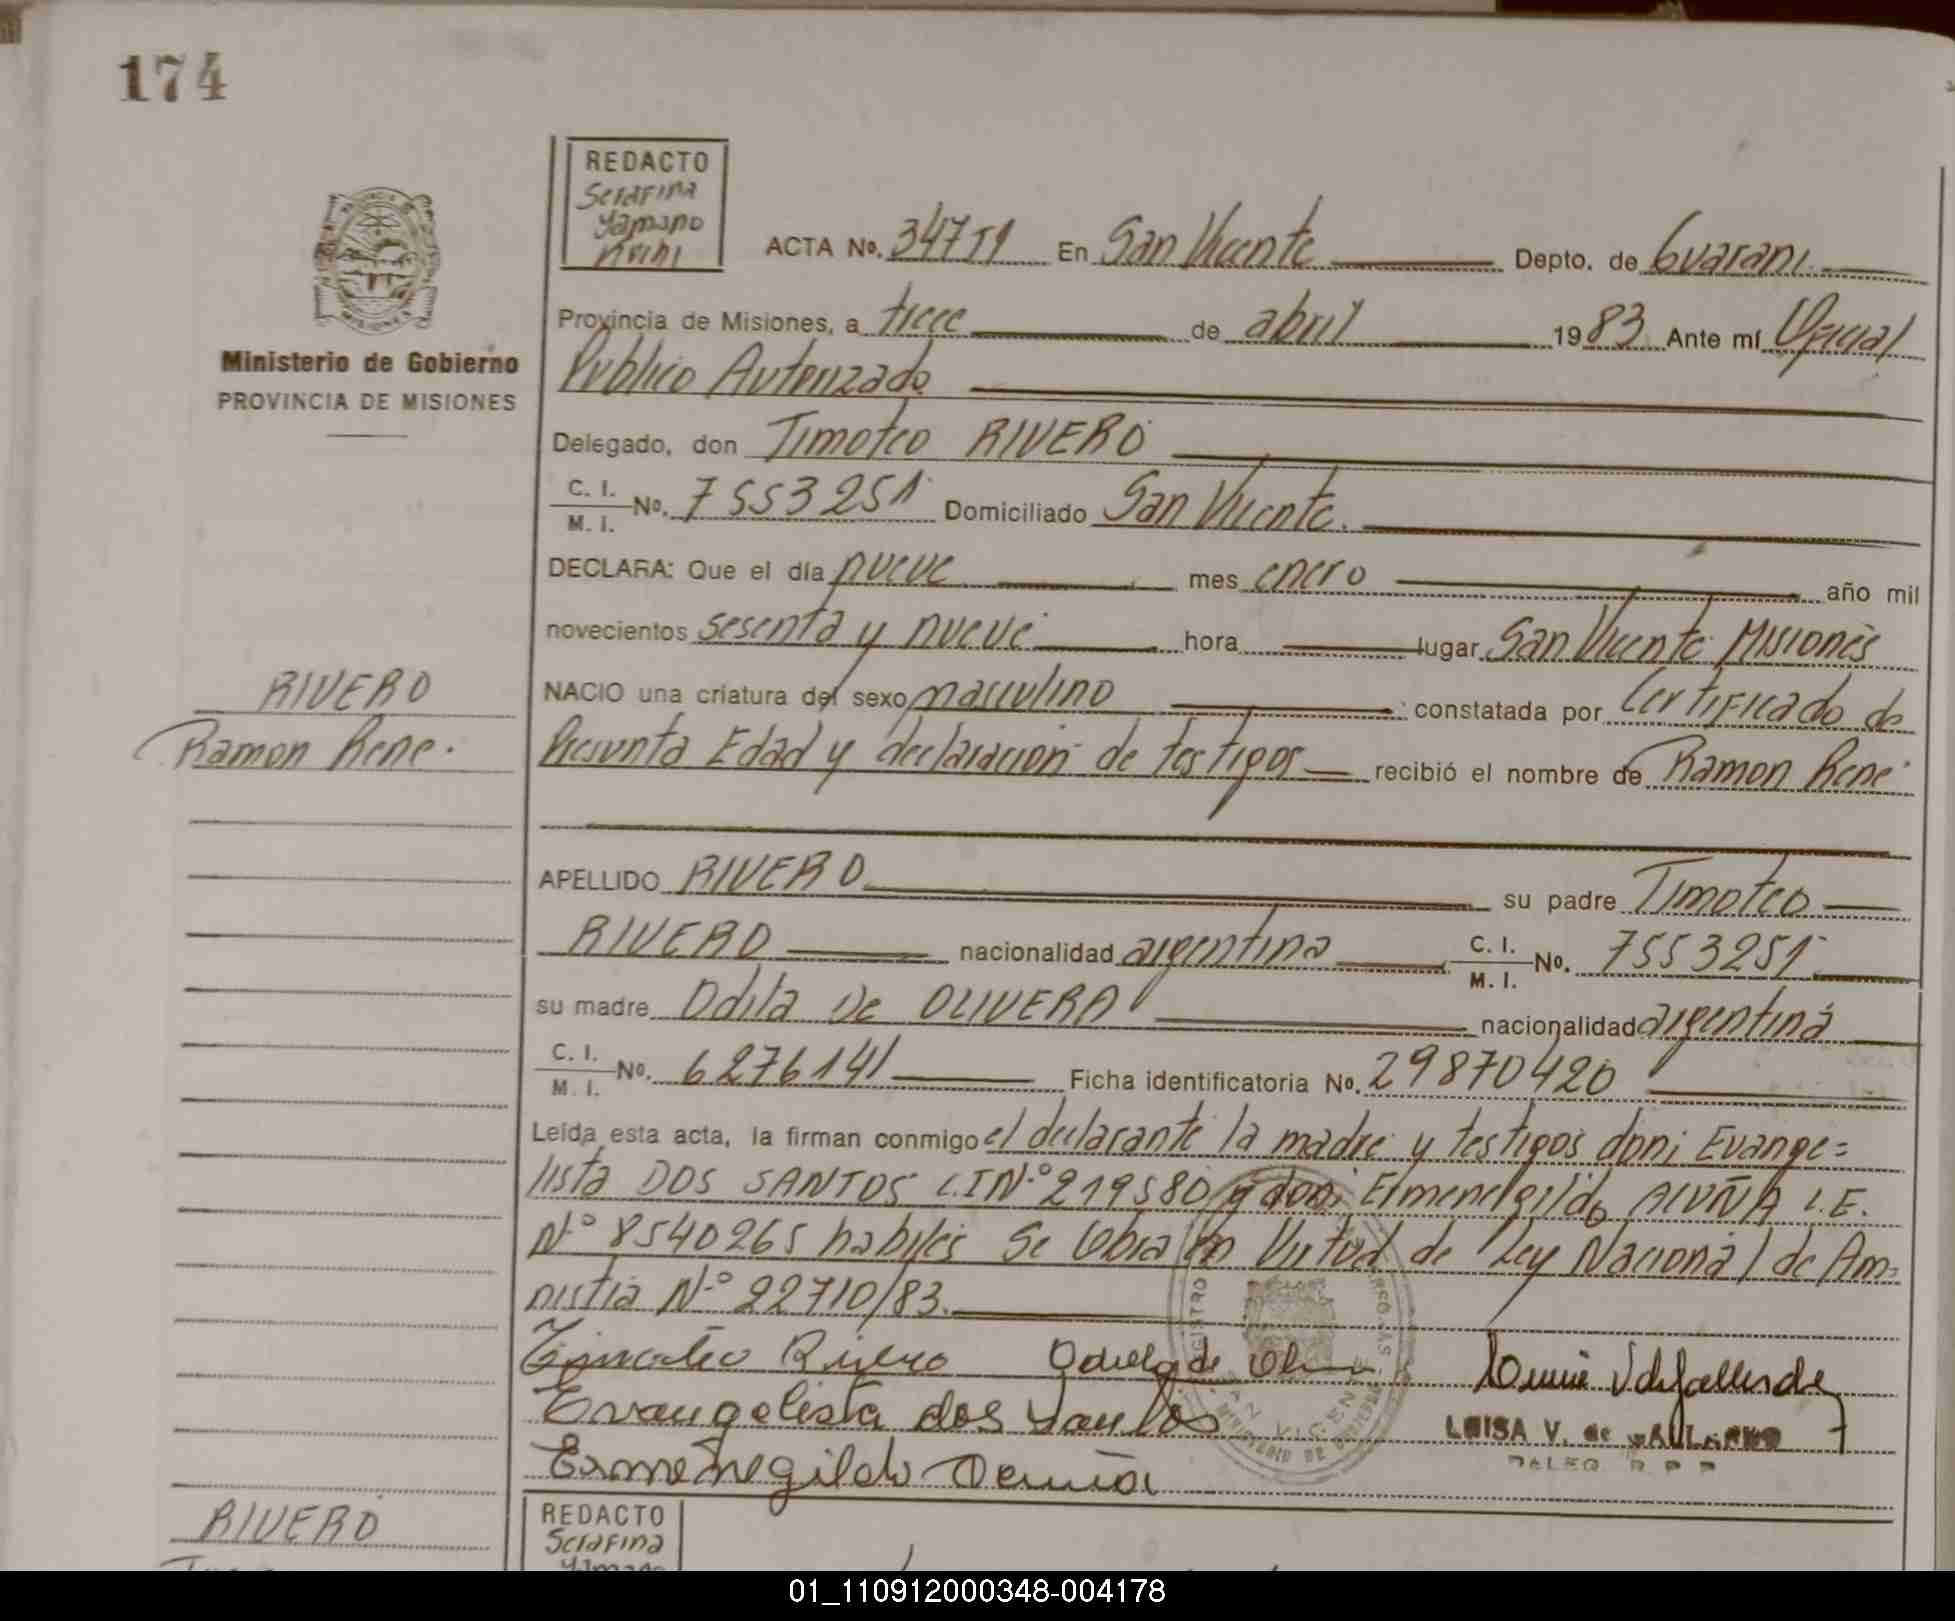 174
REDACTO
Serafina
Yamano
ACTA No. 34751 En San Vicente Depto. de Guarani.
Provincia de Misiones, a trece de abril 1983 Ante mí Oficial
Ministerio de Gobierno
PROVINCIA DE MISIONES
Publico Autorizado
Delegado, don Timoteo RIVERO
C. I.
M. I. No. 7553251 Domiciliado San Vicente.
DECLARA: Que el día nueve mes enero año mil
novecientos sesenta y nueve hora lugar San Vicente Misiones
RIVERO
NACIO una criatura del sexo masculino constatada por Certificado de
Ramon Rene.
Presunta Edad y declaracion de testigos recibió el nombre de Ramon Rene
APELLIDO RIVERO su padre Timoteo
RIVERO nacionalidad argentina C. I.
M. I. No. 7553251
su madre Odila De OLIVERA nacionalidad argentina
C. I.
M. I. No. 6276141 Ficha identificatoria No. 29870420
Leída esta acta, la firman conmigo el declarante la madre y testigos don; Evange=
lista DOS SANTOS C.I N.º 219580 y don; Ermenegildo ACUÑA L.E.
Nº 8540265 habiles Se Labra en Virtud de Ley Nacional de Am=
nistia N.º 22710/83.
Timoteo Rivero
Evangelista dos Santos
Ermenegildo Acuña
LUISA V. de
SAN VICENTE
RIVERO
REDACTO
Serafina
Yamano
01_110912000348-004178